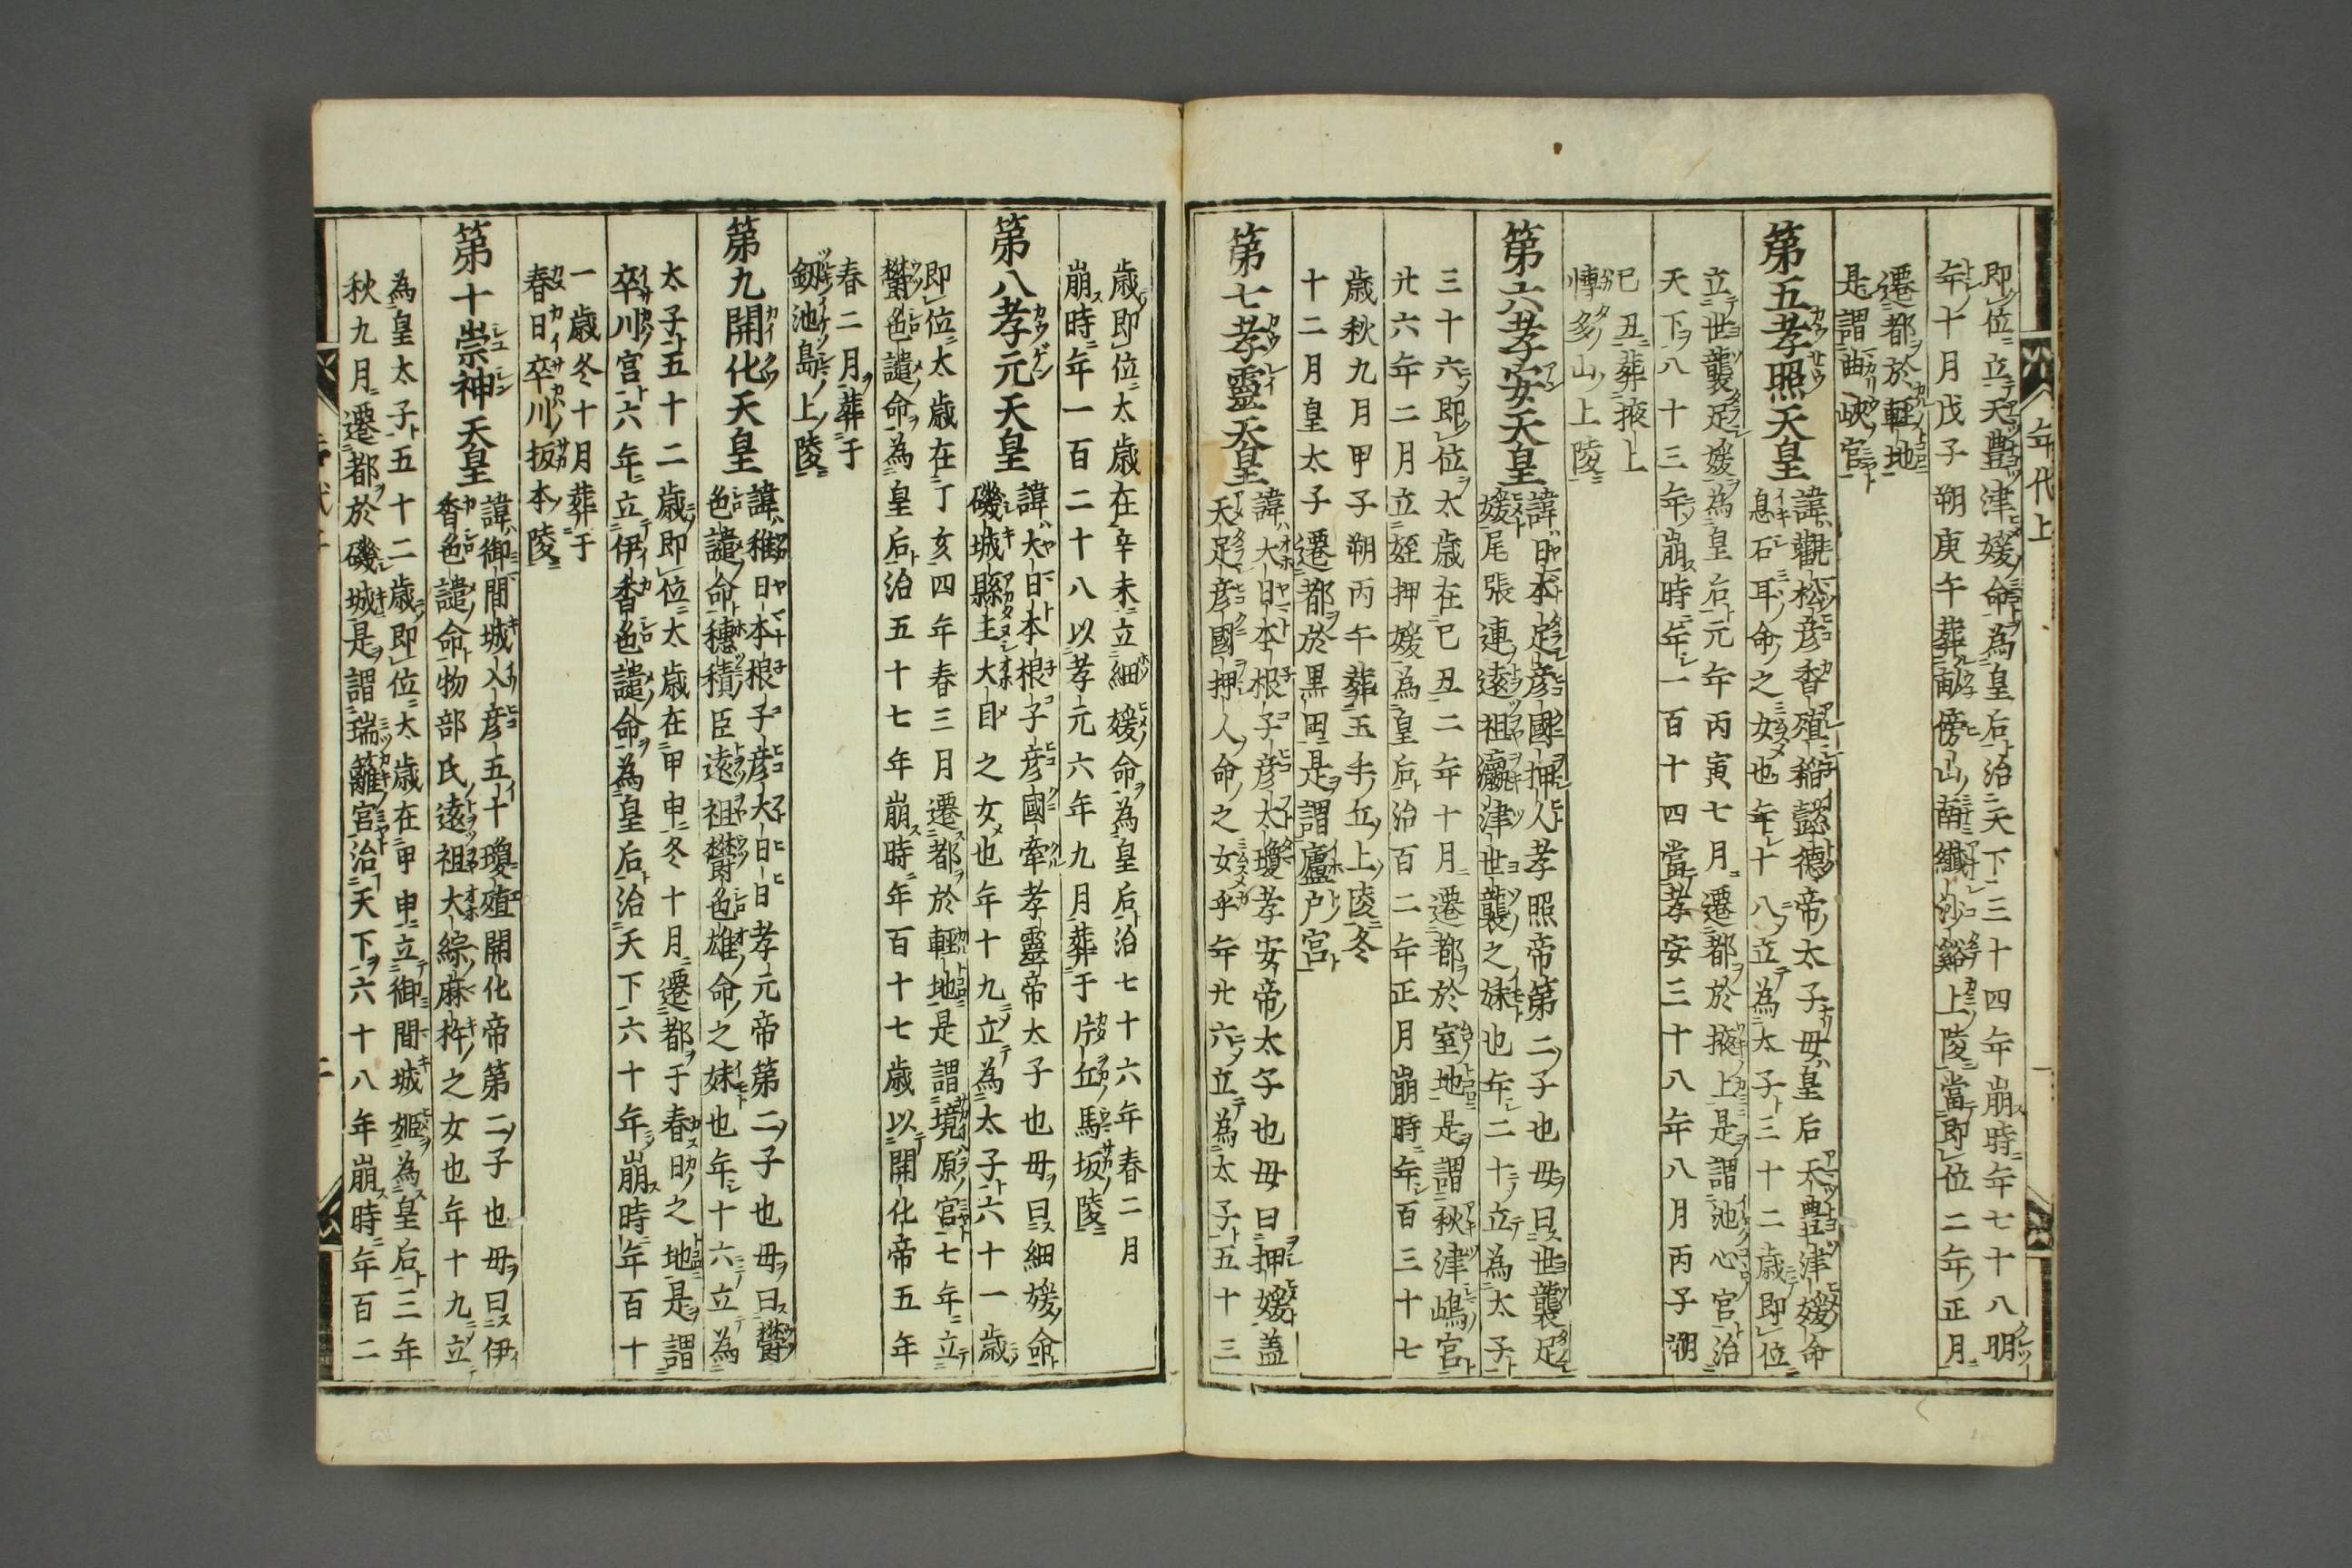 年代上
即位立天豊津媛命為皇后治天下三十四年崩時年七十八明
年十月戊子朔庚午葬畝傍山南纖沙谿上陵當即位二年正月
遷都於軽地
是謂曲峽宮
第五孝照天皇
諱觀松彦香殖稲懿徳帝太子母皇后天豊津媛命
息石耳命之女也年十八立為太子三十二歳即位
立世襲足媛為皇后元年丙寅七月遷都於掖上是謂池心宮治
天下八十三年崩時年一百十四當孝安三十八年八月丙子朔
已丑葬掖上
博多山上陵
第六孝安天皇
諱日本足彦國押人孝照帝第二子也母曰世襲足
媛尾張連遠祖瀛津世襲之妹也年二十立為太子
三十六即位太歳在已丑二年十月遷都於室地是謂秋津嶋宮
廿六年二月立姪押媛為皇后治百二年正月崩時年百三十七
歳秋九月甲子朔丙午葬玉手丘上陵冬
十二月皇太子遷都於黒田是謂廬戸宮
第七孝靈天皇
諱大日本根子彦太瓊孝安帝太子也母曰押媛盖
天足彦國押人命之女乎年廿六立為太子五十三
歳即位太歳在辛未立細媛命為皇后治七十六年春二月
崩時年一百二十八以孝元六年九月葬于片丘馬坂陵
第八孝元天皇
諱大日本根子彦國牽孝靈帝太子也母曰細媛命
磯城縣主大目之女也年十九立為太子六十一歳
即位太歳在丁亥四年春三月遷都於軽地是謂境原宮七年立
欝色謎命為皇后治五十七年崩時年百十七歳以開化帝五年
春二月葬于
劔池島上陵
第九開化天皇
諱稚日本根子彦大日日孝元帝第二子也母曰欝
色謎命穂積臣遠祖欝色雄命之妹也年十六立為
太子五十二歳即位太歳在甲申冬十月遷都于春日之地是謂
卒川宮六年立伊香色謎命為皇后治天下六十年崩時年百十
一歳冬十月葬于
春日卒川坂本陵
第十崇神天皇
諱御間城入彦五十瓊殖開化帝第二子也母曰伊
香色謎命物部氏遠祖大綜麻杵之女也年十九立
為皇太子五十二歳即位太歳在甲申立御間城姫為皇后三年
秋九月遷都於磯城是謂瑞籬宮治天下六十八年崩時年百二